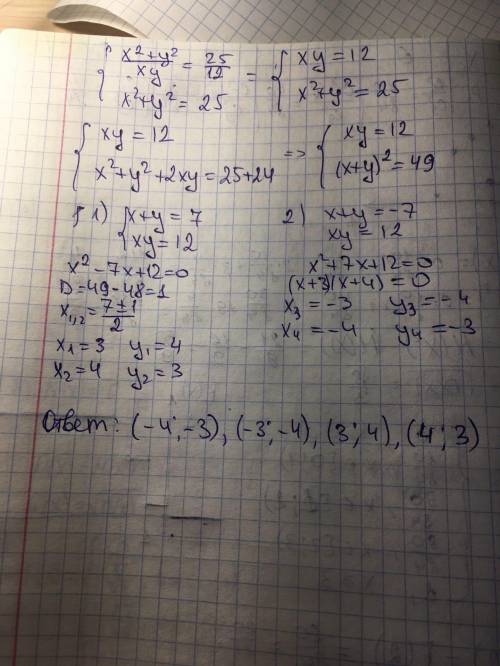 { x²+y²/xy = 25/12 = { xy = 12
x²+y² = 25 x²+y² = 25
{ xy = 12 => { xy = 12
x²+y²+2xy = 25+24 (x+y)² = 49
1) { x+y = 7
xy = 12
x² -7x+12=0
D=49-48=1
x₁,₂ = 7±1/2
x₁ = 3 y₁ = 4
x₂ = 4 y₂ = 3
2) x+y = -7
xy = 12
x²+7x+12=0
(x+3)(x+4) = 0
x₃ = -3 y₃ = -4
x₄ = -4 y₄ = -3
Ответ: (-4;-3), (-3;-4), (3;4), (4;3)